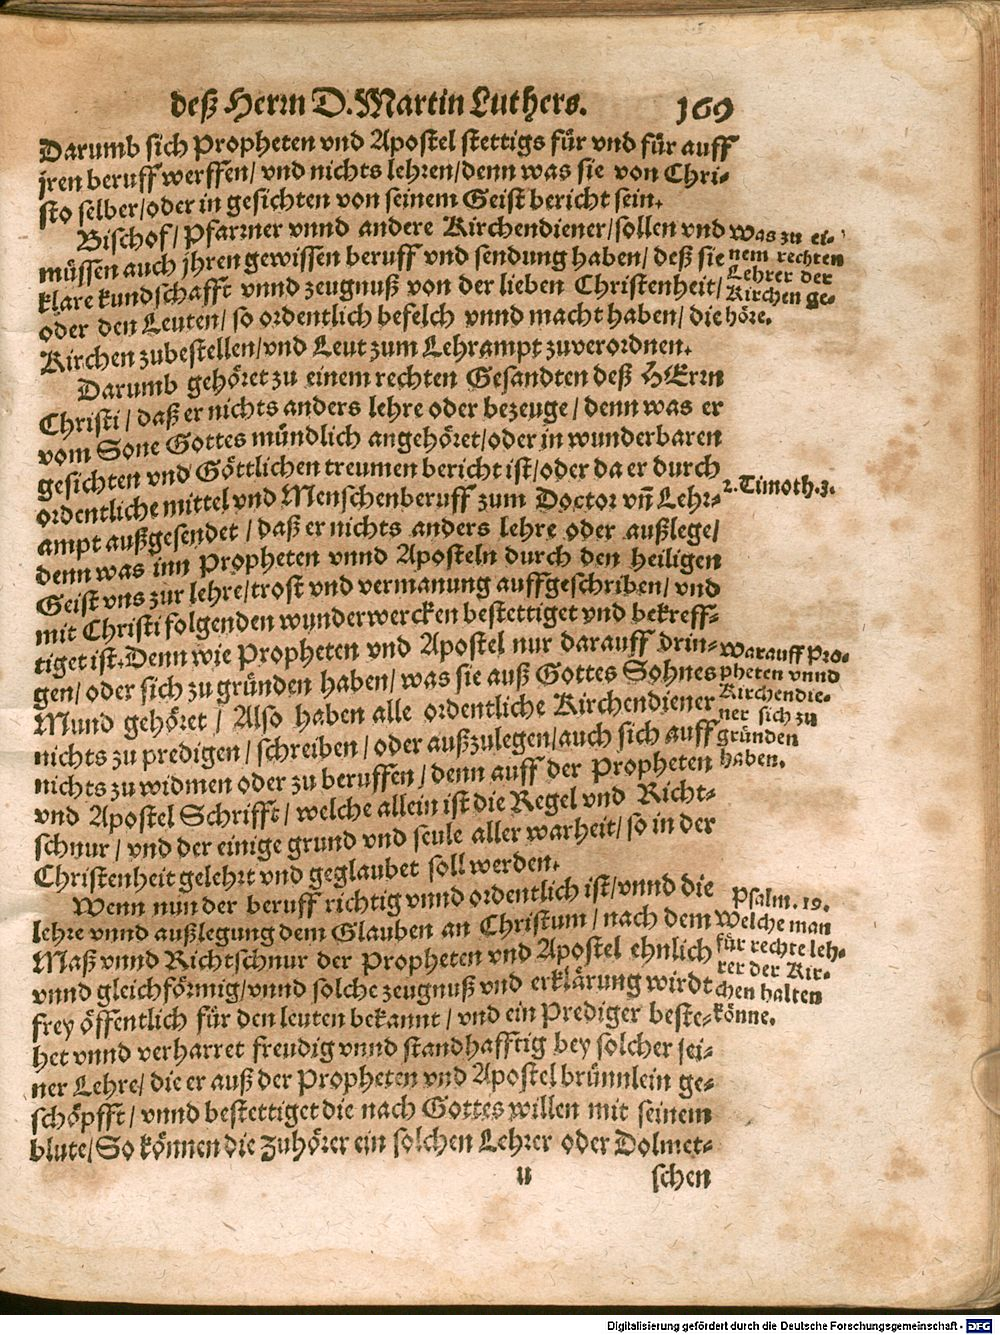 deß Herrn D. Martin Luthers. 169
Darumb sich Propheten vnd Apostel stettigs für vnd für auff
jren beruff werffen/ vnd nichts lehren/ denn was sie von Chri-
sto selber/ oder in gesichten von seinem Geist bericht sein.
Bischof/ Pfarrner vnnd andere Kirchendiener/ sollen vnd
müssen auch jhren gewissen beruff vnd sendung haben/ deß sie
klare kundschafft vnnd zeugnuß von der lieben Christenheit/
oder den Leuten/ so ordentlich befelch vnnd macht haben/ die
Kirchen zubestellen/ vnd Leut zum Lehrampt zuverordnen.
Was zu ei-
nem rechten
Lehrer der
Kirchen ge-
höre.
Darumb gehöret zu einem rechten Gesandten deß HErrn
Christi/ daß er nichts anders lehre oder bezeuge/ denn was er
vom Sone Gottes mündlich angehöret/ oder in wunderbaren
gesichten vnd Göttlichen treumen bericht ist/ oder da er durch
ordentliche mittel vnd Menschenberuff zum Doctor vñ Lehr-
ampt außgesendet/ daß er nichts anders lehre oder außlege/
denn was inn Propheten vnnd Aposteln durch den heiligen
Geist vns zur lehre/ trost vnd vermanung auffgeschriben/ vnd
mit Christi folgenden wunderwercken bestettiget vnd bekreff-
tiget ist. Denn wie Propheten vnd Apostel nur darauff drin-
gen/ oder sich zu gründen haben/ was sie auß Gottes Sohnes
Mund gehöret/ Also haben alle ordentliche Kirchendiener
nichts zu predigen/ schreiben/ oder außzulegen/ auch sich auff
nichts zu widmen oder zu beruffen/ denn auff der Propheten
vnd Apostel Schrifft/ welche allein ist die Regel vnd Richt-
schnur/ vnd der einige grund vnd seule aller warheit/ so in der
Christenheit gelehrt vnd geglaubet soll werden.
2. Timoth. 3.
Warauff Pro-
pheten vnnd
Kirchendie-
ner sich zu
gründen
haben.
Wenn nun der beruff richtig vnnd ordentlich ist/ vnnd die
lehre vnnd außlegung dem Glauben an Christum/ nach dem
Maß vnnd Richtschnur der Propheten vnd Apostel ehnlich
vnnd gleichförmig/ vnnd solche zeugnuß vnd erklärung wirdt
frey öffentlich für den leuten bekannt/ vnd ein Prediger beste-
het vnnd verharret freudig vnnd standhafftig bey solcher sei-
ner Lehre/ die er auß der Propheten vnd Apostel brünnlein ge-
schöpfft/ vnnd bestettiget die nach Gottes willen mit seinem
blute/ So können die Zuhörer ein solchen Lehrer oder Dolmet-
Psalm. 19.
Welche man
für rechte leh-
rer der Kir-
chen halten
könne.
U schen
Digitalisierung gefördert durch die Deutsche Forschungsgemeinschaft - DFG